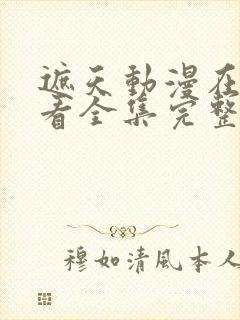 遮天動漫在
看全集完整
穆如清風本人